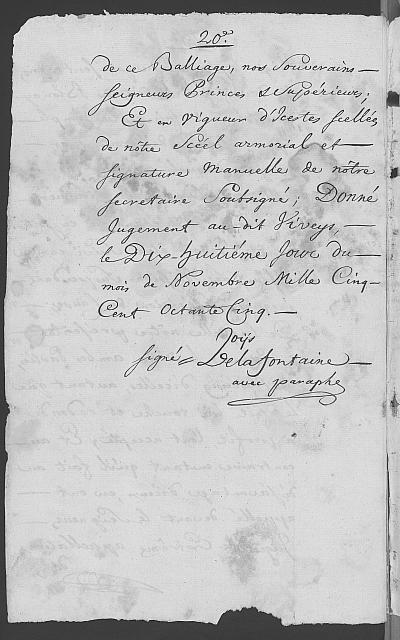 20.º
de ce Balliage, nos Souverains
Seigneurs Princes & Supérieurs;
Et en vigueur d'Icestes scellés
de nôtre Scéel armorial et
signature Manuelle de nôtre
Secretaire Soubsigné; Donné
Jugement au-dit Viveys,
le Dix-huitiéme Jour du
mois de Novembre Mille Cinq
Cent Octante Cinq.
signé = Delafontaine
avec paraphe